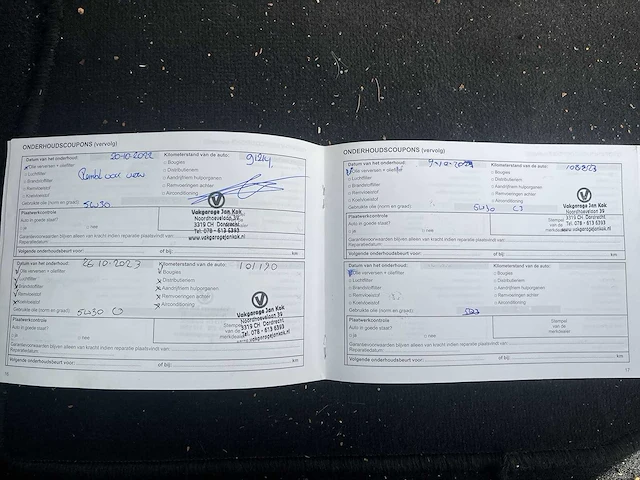 ONDERHOUDSCOUPONS (vervolg)
Datum van het onderhoud: 20-10-2022 Kilometerstand van de auto:
Olie verversen + oliefilter
Bougies
Luchtfilter
Distributieriem
Brandstoffilter
Aandrijfriem hulporganen
Remvloeistof
Remvoeringen achter
Koelvloeistof
Airconditioning
Gebruikte olie (norm en graad): 5W30
Vakgarage Jan Kok
Noordhoevelaan 39
3319 CH Dordrecht
Tel. 078 - 613 6393
www.vakgaragejankok.nl
Plaatwerkcontrole
Auto in goede staat?
ja
nee
Garantievoorwaarden blijven alleen van kracht indien reparatie plaatsvindt van
Reparatiedatum:
Volgende onderhoudsbeurt voor: of bij: km
Datum van het onderhoud: 26-10-2023 Kilometerstand van de auto: 101190
Olie verversen + oliefilter
Bougies
Luchtfilter
Distributieriem
Brandstoffilter
Aandrijfriem hulporganen
Remvloeistof
Remvoeringen achter
Koelvloeistof
Airconditioning
Gebruikte olie (norm en graad): 5W30 C3
Vakgarage Jan Kok
Noordhoevelaan 39
3319 CH Dordrecht
Tel. 078 - 613 6393
www.vakgaragejankok.nl
Plaatwerkcontrole
Auto in goede staat?
ja
nee
Stempel
van de
merkdealer
Garantievoorwaarden blijven alleen van kracht indien reparatie plaatsvindt van
Reparatiedatum:
Volgende onderhoudsbeurt voor: of bij: km
16
ONDERHOUDSCOUPONS (vervolg)
Datum van het onderhoud: Kilometerstand van de auto:
Olie verversen + oliefilter
Bougies
Luchtfilter
Distributieriem
Brandstoffilter
Aandrijfriem hulporganen
Remvloeistof
Remvoeringen achter
Koelvloeistof
Airconditioning
Gebruikte olie (norm en graad): 5W30 C3
Vakgarage Jan Kok
Noordhoevelaan 39
3319 CH Dordrecht
Tel. 078 - 613 6393
www.vakgaragejankok.nl
Plaatwerkcontrole
Auto in goede staat?
ja
nee
Garantievoorwaarden blijven alleen van kracht indien reparatie plaatsvindt van
Reparatiedatum:
Volgende onderhoudsbeurt voor: of bij: km
Olie verversen + oliefilter
Bougies
Luchtfilter
Distributieriem
Brandstoffilter
Aandrijfriem hulporganen
Remvloeistof
Remvoeringen achter
Koelvloeistof
Airconditioning
Gebruikte olie (norm en graad):
Plaatwerkcontrole
Auto in goede staat?
ja
nee
Stempel
van de
merkdealer
Garantievoorwaarden blijven alleen van kracht indien reparatie plaatsvindt van
Reparatiedatum:
Volgende onderhoudsbeurt voor: of bij: km
17